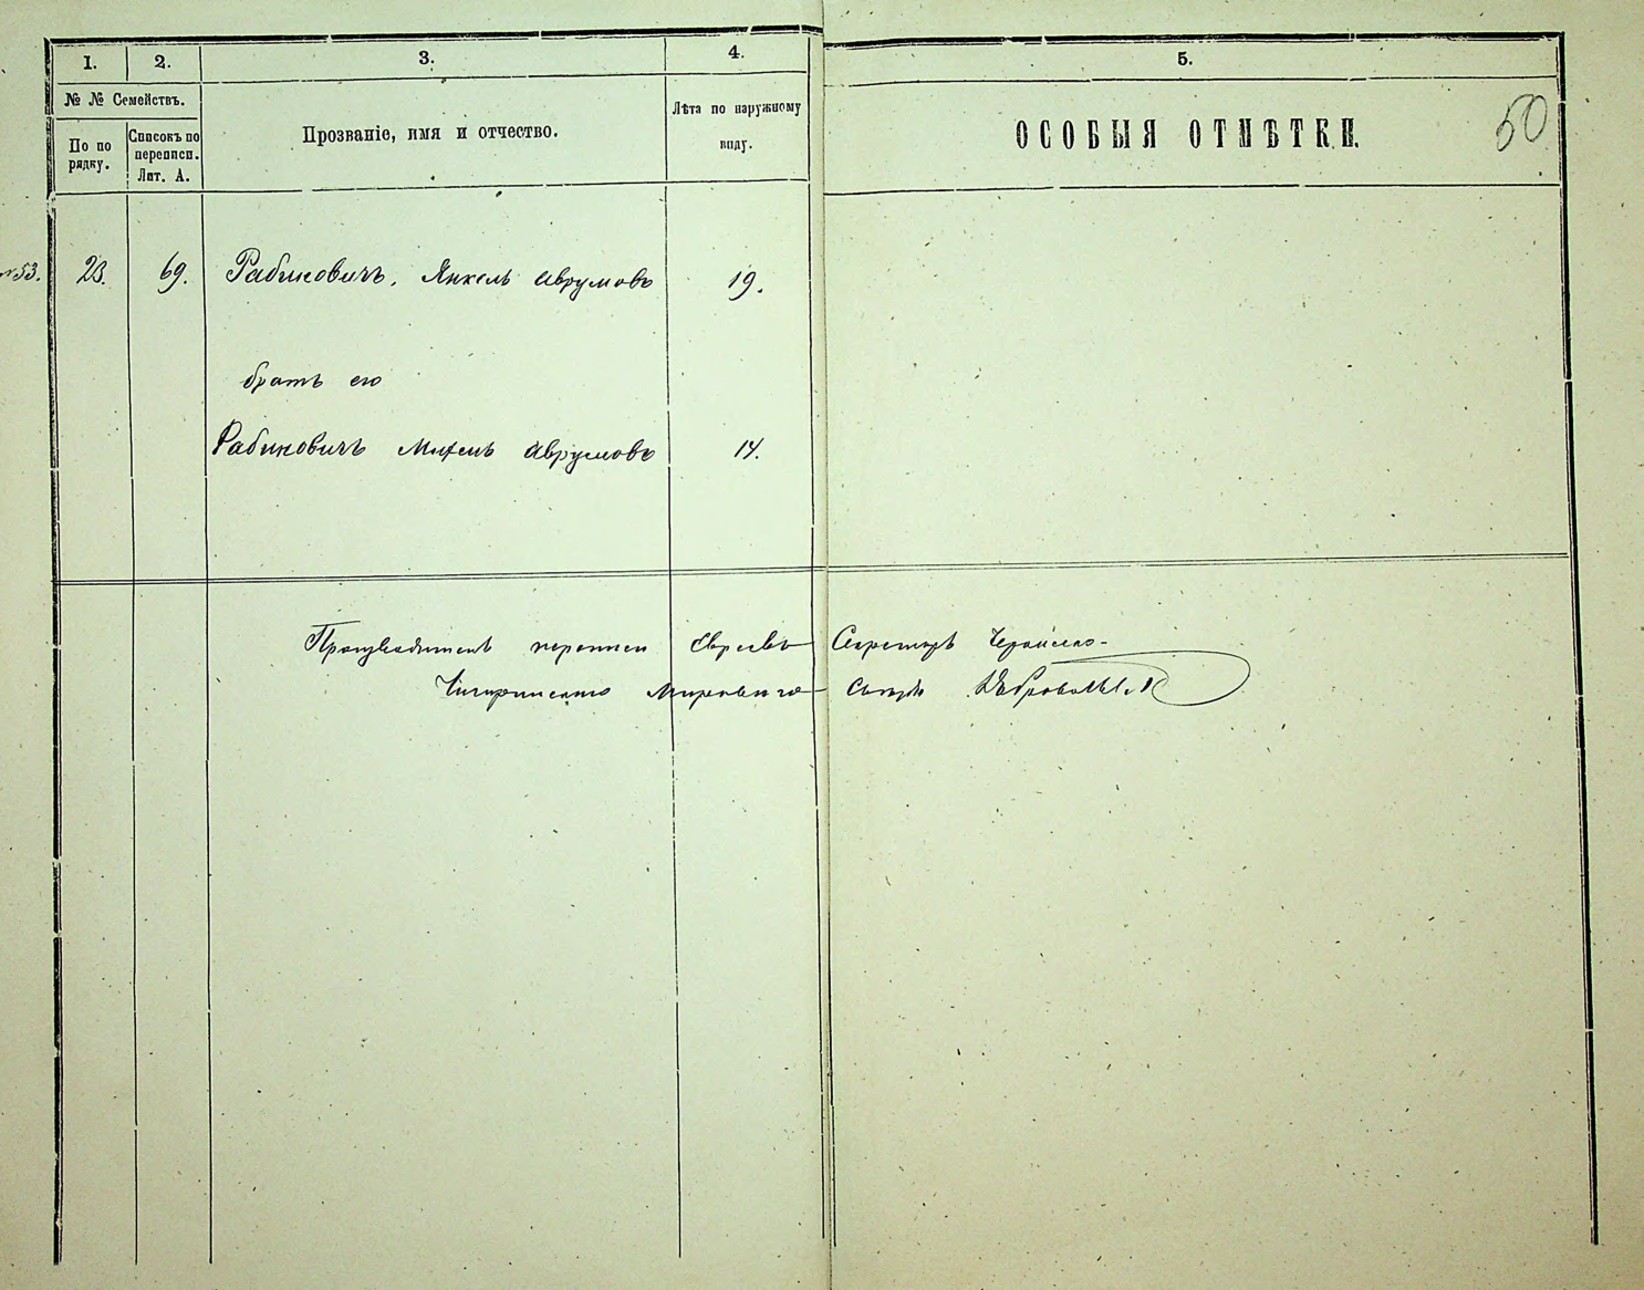 1. 2. 3. 4. 5.
№ № Семействъ.
По по
рядку.
Списокъ по
переписи.
Лит. А.
Прозваніе, имя и отчество.
Лѣта по наружному
виду.
ОСОБЫЯ ОТМѢТКИ.
50
№ 53. 23. 69. Рабиновичъ, Янкель Аврумовъ 19.
братъ его
Рабиновичъ Михель Аврумовъ 14.
Производитель переписи Евреевъ Секретарь Черкасско-
Чигиринскаго Мироваго Съѣзда